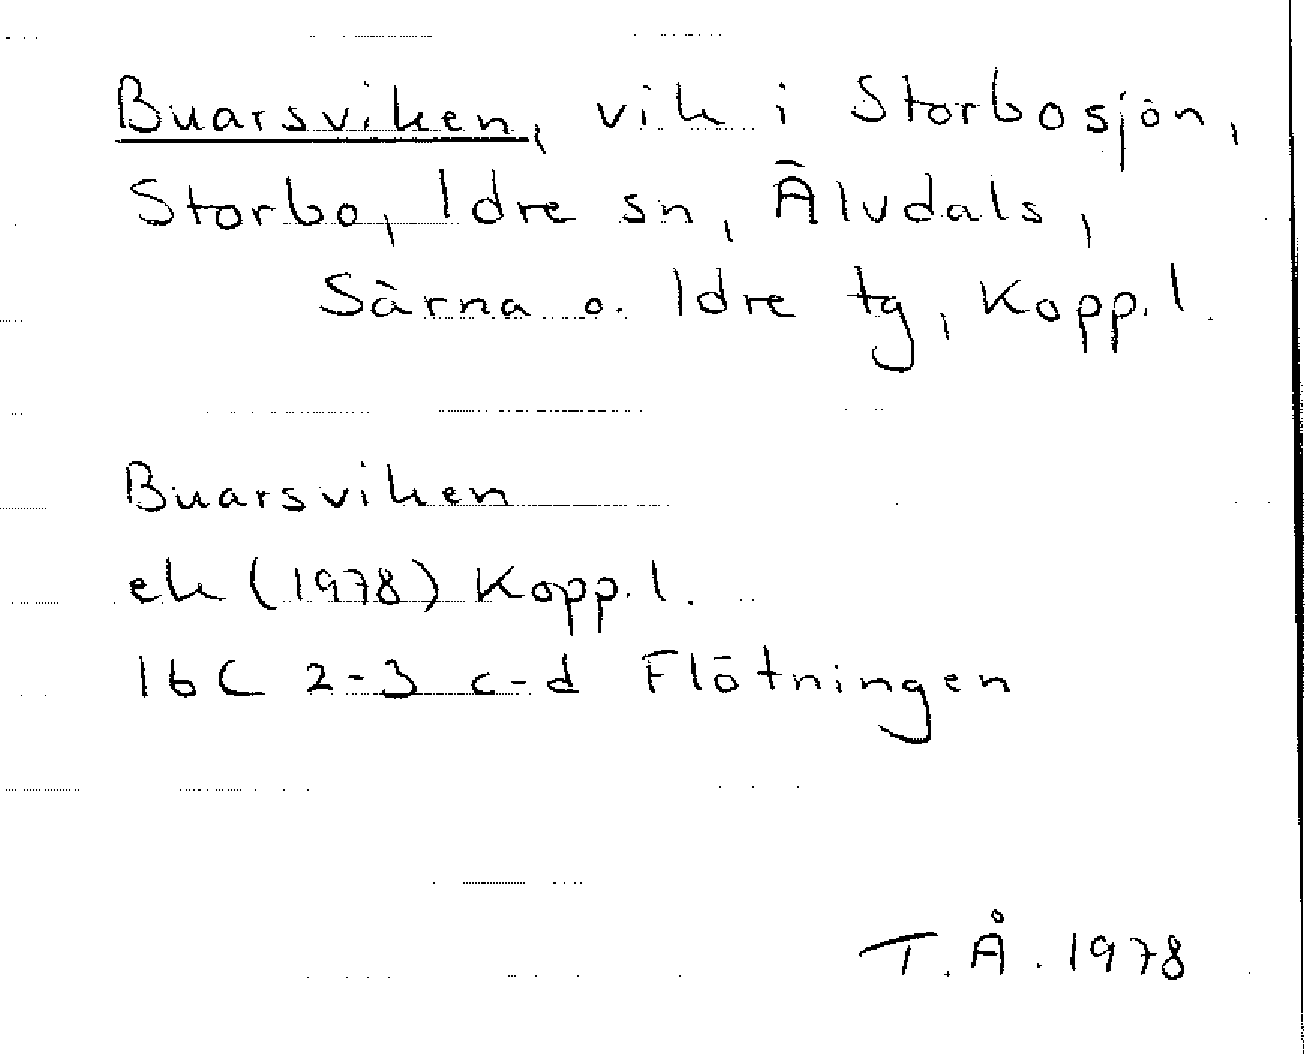 Buarsviken, vik i Storbosjön,
Storbo, Idre sn, Älvdals,
Särna o. Idre tg, Kopp.l.
Buarsviken
ek (1978) Kopp.l.
16C 2-3 c-d Flötningen
T.Å. 1978